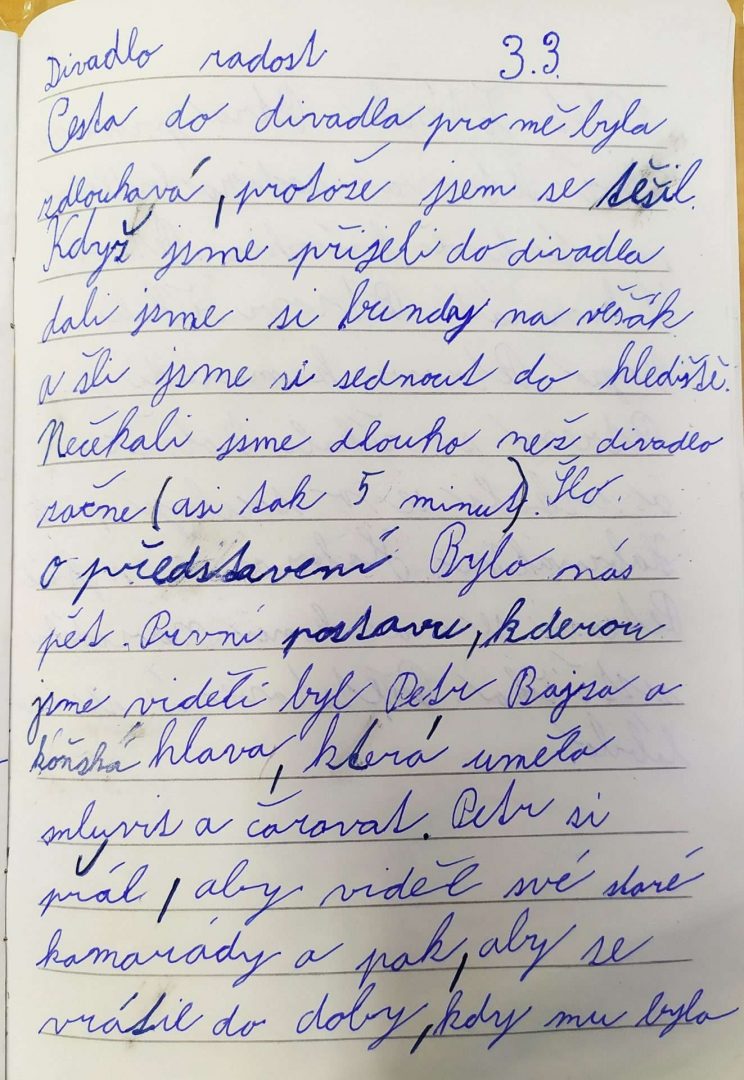 Divadlo radost 3.3.
Cesta do divadla pro mě byla
zdlouhavá, protože jsem se těšil.
Když jsme přijeli do divadla
dali jsme si bundy na věšák
a šli jsme si sednout do hlediště.
Nečekali jsme dlouho než divadlo
začne (asi tak 5 minut). Šlo
o představení Bylo nás
pět. První postavu, kderou
jsme viděli byl Petr Bajza a
kóňská hlava, která uměla
mluvit a čarovat. Petr si
přál, aby viděl své staré
kamarády a pak, aby se
vrátil do doby, kdy mu bylo